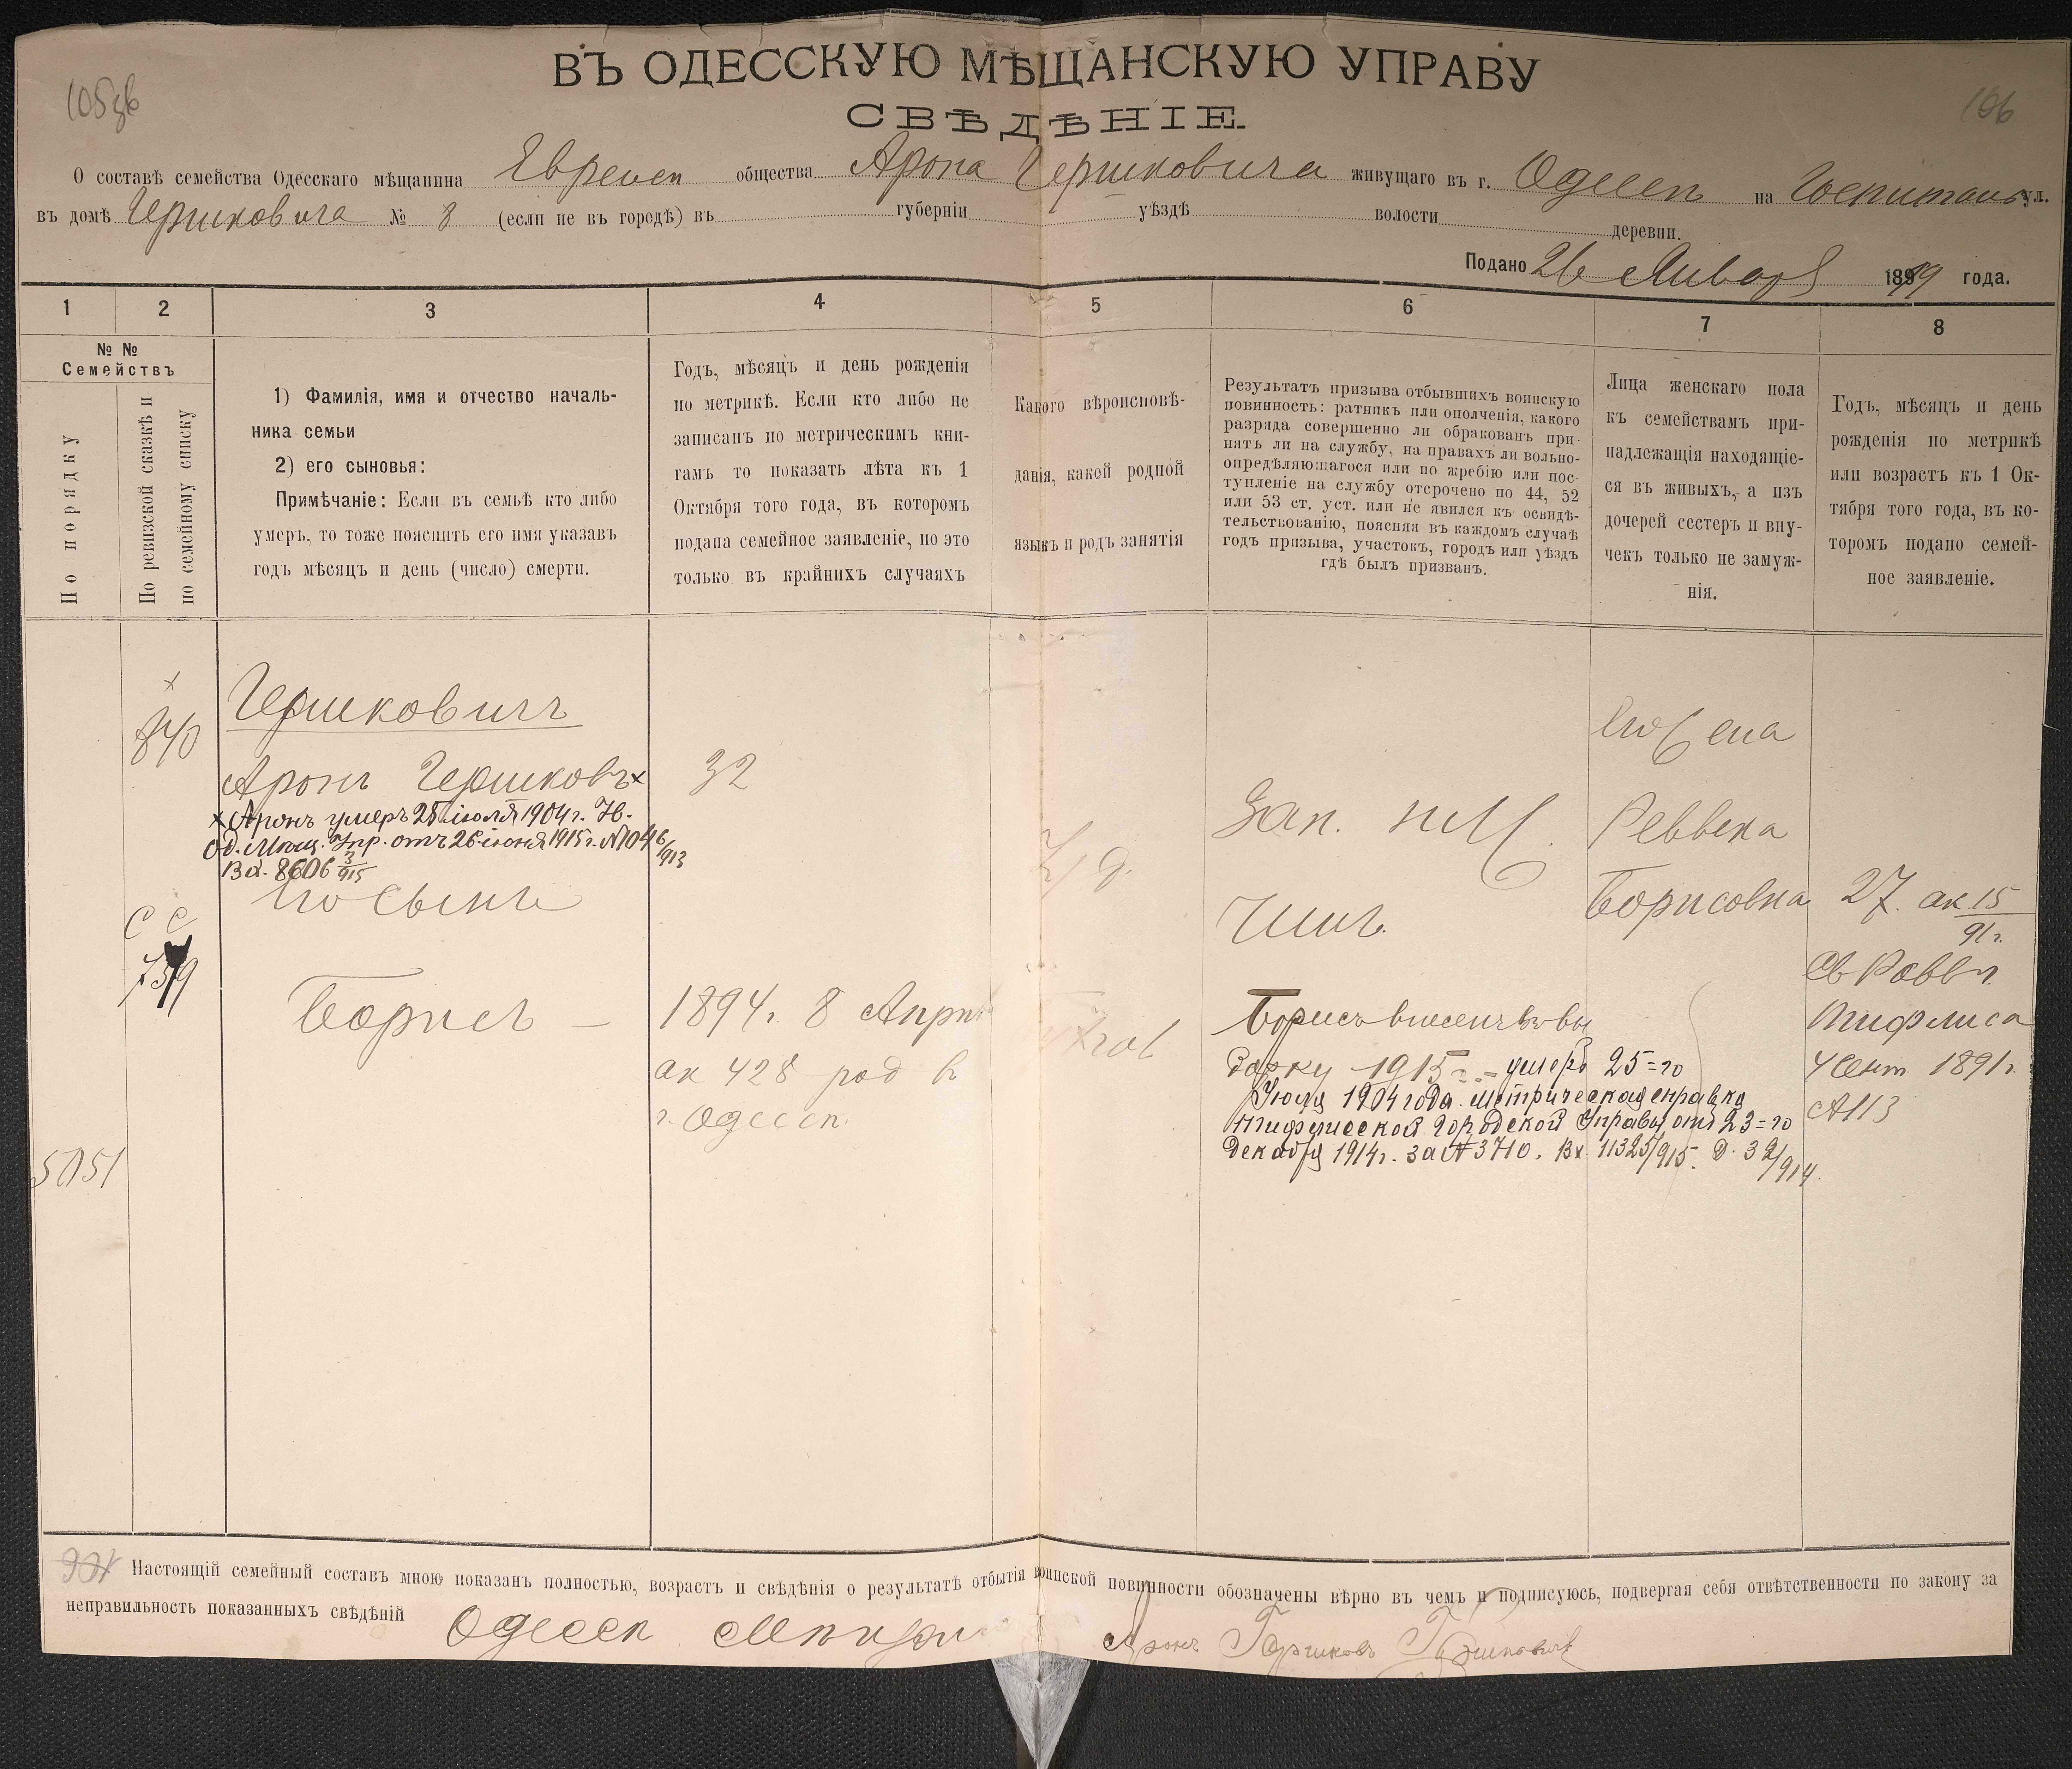 ВЪ ОДЕССКУЮ МѢЩАНСКУЮ УПРАВУ
СВѢДѢНІЕ.
106
О составѣ семейства Одесскаго мѣщанина Евреск общества Арона Гершковича живущаго въ г. Одессѣ на Госпитальн ул.
въ домѣ Гершковича № 8 (если не въ городѣ) въ губерніи уѣздѣ волости деревни.
Подано 26 Января 1899 года.
1 2 3 4 5 6 7 8
№ №
Семействъ
По порядку
По ревизской сказкѣ и
по семейному списку
1) Фамилія, имя и отчество началь-
ника семьи
2) его сыновья:
Примѣчаніе: Если въ семьѣ кто либо
умеръ, то тоже пояснить его имя указавъ
годъ мѣсяцъ и день (число) смерти.
Годъ, мѣсяцъ и день рожденія
по метрикѣ. Если кто либо не
записанъ по метрическимъ кни-
гамъ то показать лѣта къ 1
Октября того года, въ которомъ
подана семейное заявленіе, но это
только въ крайнихъ случаяхъ
Какого вѣроисповѣ-
данія, какой родной
языкъ и родъ занятія
Результатъ призыва отбывшихъ воинскую
повинность: ратникъ или ополченія, какого
разряда совершенно ли обракованъ при-
нятъ ли на службу, на правахъ ли вольно-
опредѣляющагося или по жребію или пос-
тупленіе на службу отсрочено по 44, 52
или 53 ст. уст. или не явился къ освидѣ-
тельствованію, поясняя въ каждомъ случаѣ
годъ призыва, участокъ, городъ или уѣздъ
гдѣ былъ призванъ.
Лица женскаго пола
къ семействамъ при-
надлежащія находящіе-
ся въ живыхъ, а изъ
дочерей сестеръ и вну-
чекъ только не замуж-
нія.
Годъ, мѣсяцъ и день
рожденія по метрикѣ
или возрастъ къ 1 Ок-
тября того года, въ ко-
торомъ подано семей-
ное заявленіе.
840
Гершковичъ
Аронъ Гершковъ х
32
х Аронъ умеръ 25 іюля 1904 г.
Од. Мѣщ. Упр. отъ 26 іюня 1915 г. № 1046/913
Вх. 8606 3/915
его сынъ
СС
759
Борисъ —
1894 г. 8 Апрѣл
ак 428 род в
г. Одессѣ.
5051
Іуд.
Зап. НМ.
Чинъ.
Борисъ внесенъ въ вы
борку 1915 г. — умеръ 25=го
Іюля 1904 года. Метрическая справка
Тифлисской Городской Управы отъ 23=го
Декабря 1914 г. за № 3710. Вх. 11325/915. Д. 32/914.
его жена
Реввека
Борисовна
27. ак. 15
91 г.
Св Равв.
Тифлиса
4 Сент 1891 г.
№ 113
Настоящій семейный составъ мною показанъ полностью, возрастъ и свѣдѣнія о результатѣ отбытія воинской повинности обозначены вѣрно въ чемъ и подписуюсь, подвергая себя отвѣтственности по закону за
неправильность показанныхъ свѣдѣній Одесск Мѣщан Аронъ Гершковъ Гершковичъ